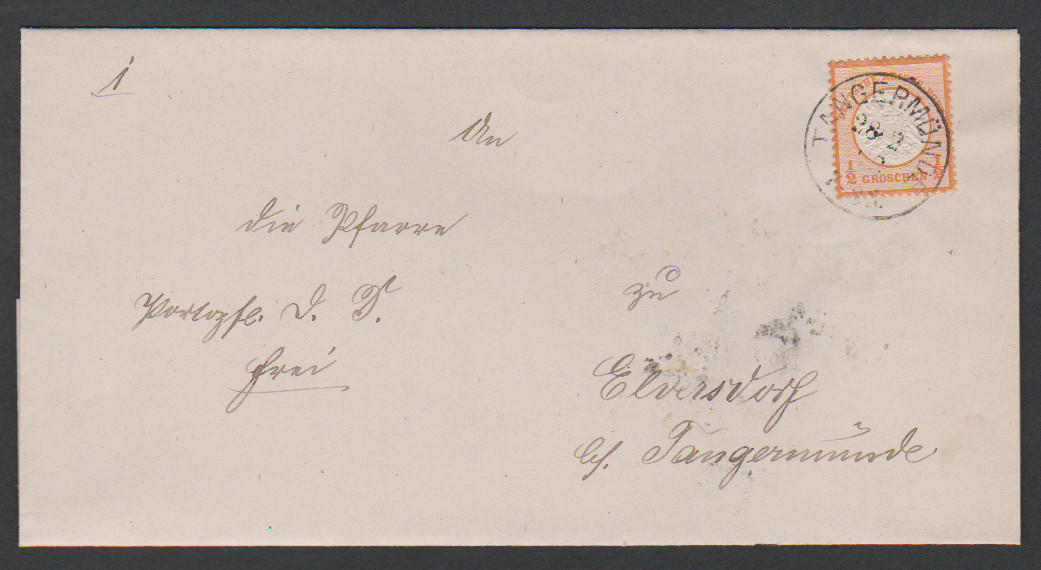 1
TANGERMÜNDE
28 2
½ GROSCHEN ½
An
die Pfarre
Portopfl. D. S.
frei
zu
Elversdorf
b/. Tangermünde